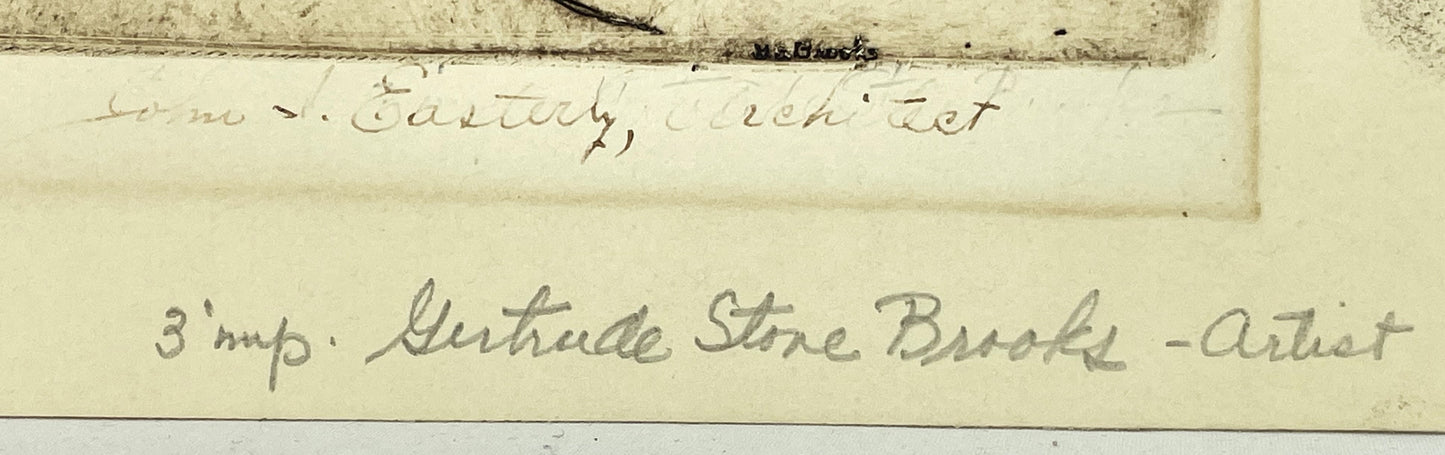 Brooks
John J. Easterly, Architect
3 imp. Gertrude Stone Brooks - Artist